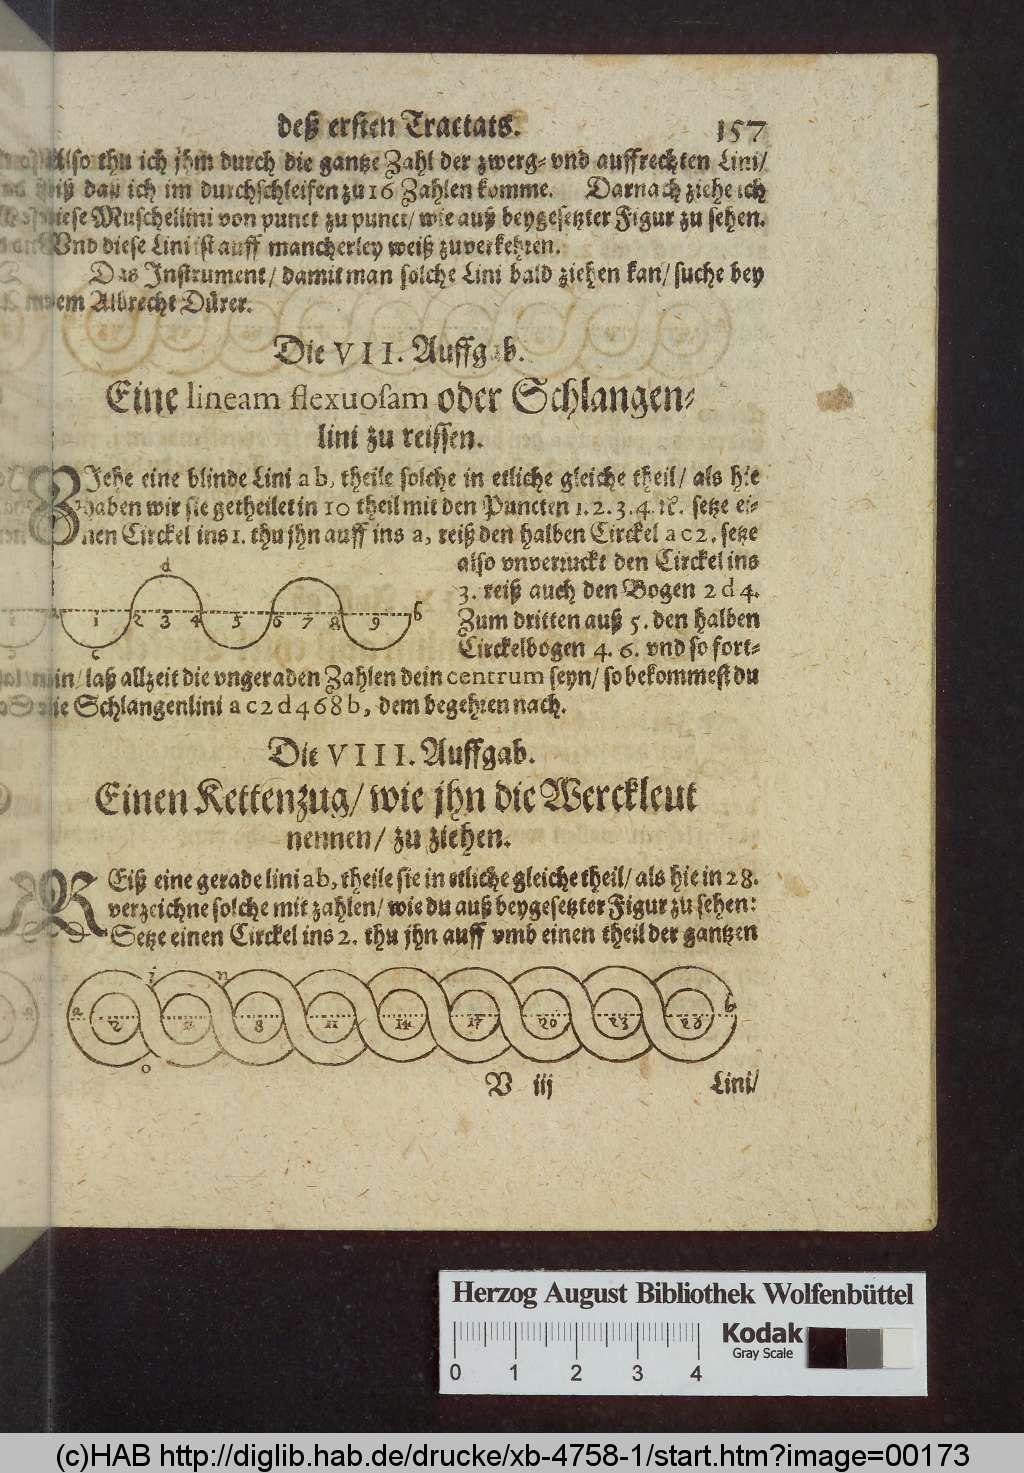 deß ersten Tractats. 157
Also thu ich jhm durch die gantze Zahl der zwerg- vnd auffrechten Lini/
biß daß ich im durchschleifen zu 16 Zahlen komme. Darnach ziehe ich
diese Muschellini von punct zu punct/ wie auß beygesetzter Figur zu sehen.
Vnd diese Lini ist auff mancherley weiß zuverkehren.
Das Instrument/ damit man solche Lini bald ziehen kan/ suche bey
dem Albrecht Dürer.
Die VII. Auffgab.
Eine lineam flexuosam oder Schlangen-
lini zu reissen.
ZIehe eine blinde Lini a b, theile solche in etliche gleiche theil/ als hie
haben wir sie getheilet in 10 theil mit den Puncten 1. 2. 3. 4. ꝛc. setze ei-
nen Circkel ins 1. thu jhn auff ins a, reiß den halben Circkel a c 2. setze
also vnverruckt den Circkel ins
3. reiß auch den Bogen 2 d 4.
Zum dritten auß 5. den halben
Circkelbogen 4. 6. vnd so fort-
d
1 2 3 4 5 6 7 8 9 b
c
in/ laß allzeit die vngeraden Zahlen dein centrum seyn/ so bekommest du
die Schlangenlini a c 2 d 4 6 8 b, dem begehren nach.
Die VIII. Auffgab.
Einen Kettenzug/ wie jhn die Werckleut
nennen/ zu ziehen.
REiß eine gerade lini a b, theile sie in etliche gleiche theil/ als hie in 28.
verzeichne solche mit zahlen/ wie du auß beygesetzter Figur zu sehen:
Setze einen Circkel ins 2. thu jhn auff vmb einen theil der gantzen
i n
a 2 8 11 14 17 20 23 b
o
V iij Lini/
Herzog August Bibliothek Wolfenbüttel
Kodak
Gray Scale
0 1 2 3 4
(c)HAB http://diglib.hab.de/drucke/xb-4758-1/start.htm?image=00173